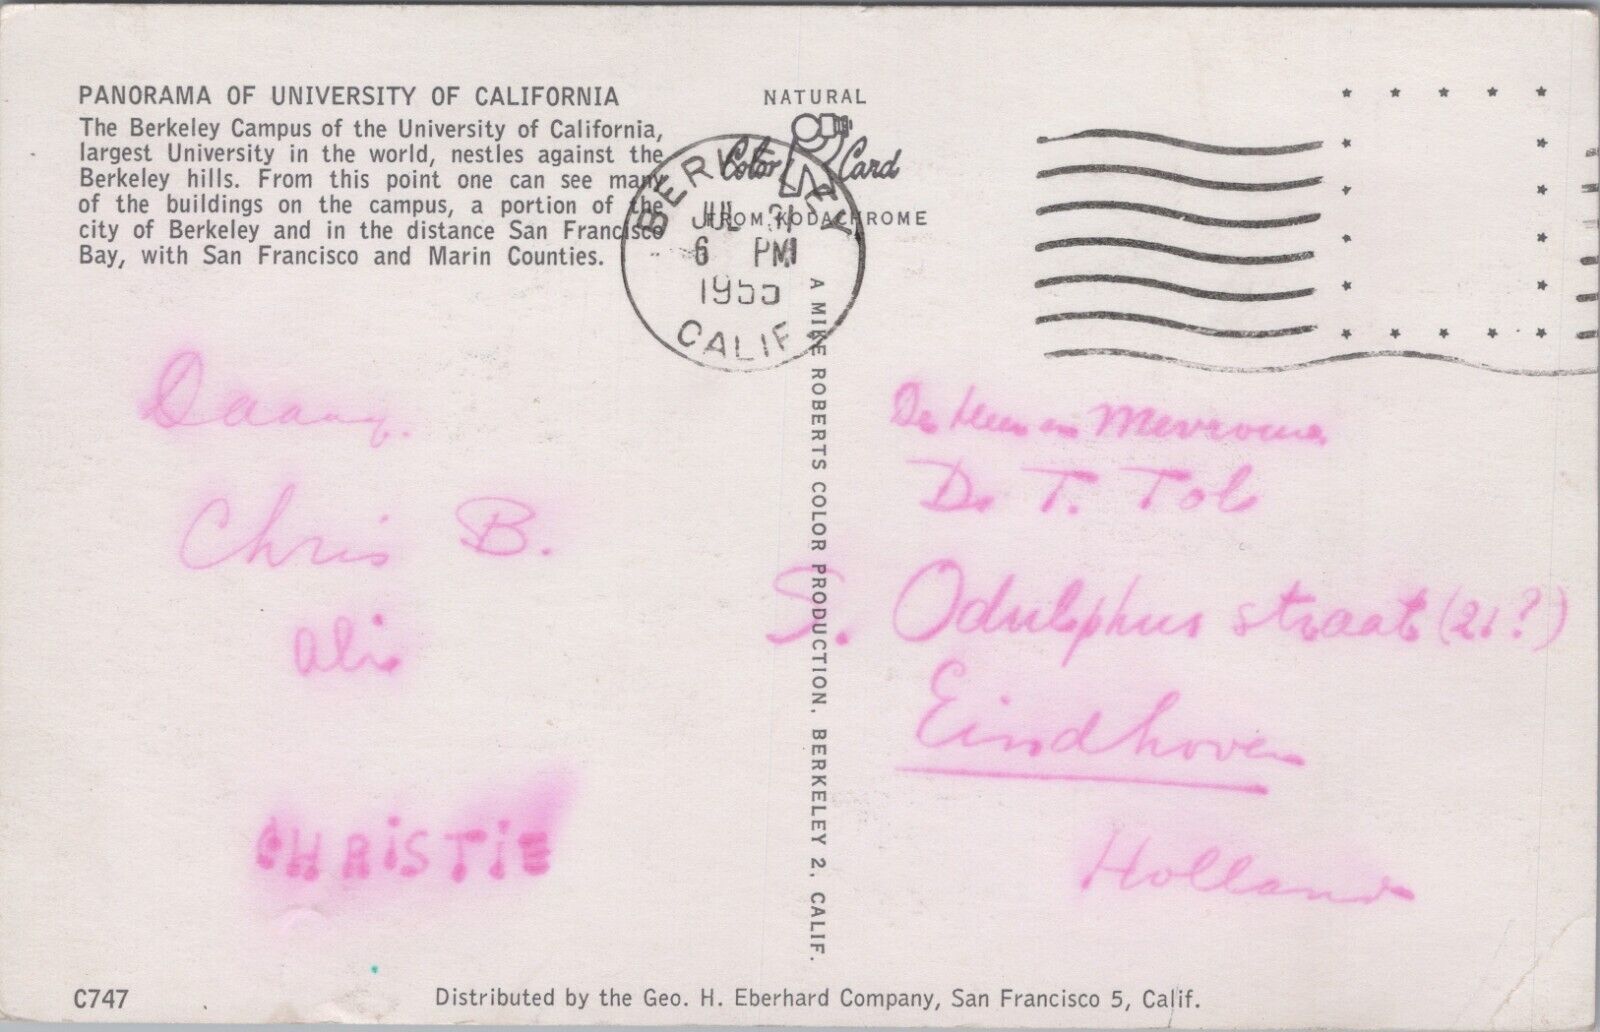 PANORAMA OF UNIVERSITY OF CALIFORNIA
The Berkeley Campus of the University of California,
largest University in the world, nestles against the
Berkeley hills. From this point one can see many
of the buildings on the campus, a portion of the
city of Berkeley and in the distance San Francisco
Bay, with San Francisco and Marin Counties.
NATURAL
Color Card
FROM KODACHROME
BERKELEY
JUL 21
6 PM
1955
CALIF
A MIKE ROBERTS COLOR PRODUCTION, BERKELEY 2, CALIF.
Chris B.
CHRiSTiE
De Heer en Mevrouw
Dr. T. Tol
S. Odulphus straat (21?)
Eindhoven
Holland
C747
Distributed by the Geo. H. Eberhard Company, San Francisco 5, Calif.